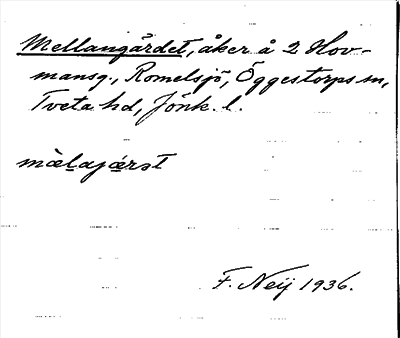 Mellangärdet, åker å 2 Hov-
mansg., Romelsjö, Öggestorps sn,
Tveta hd, Jönk. l.
mæ̀lajæ̣rət
F. Neij 1936.